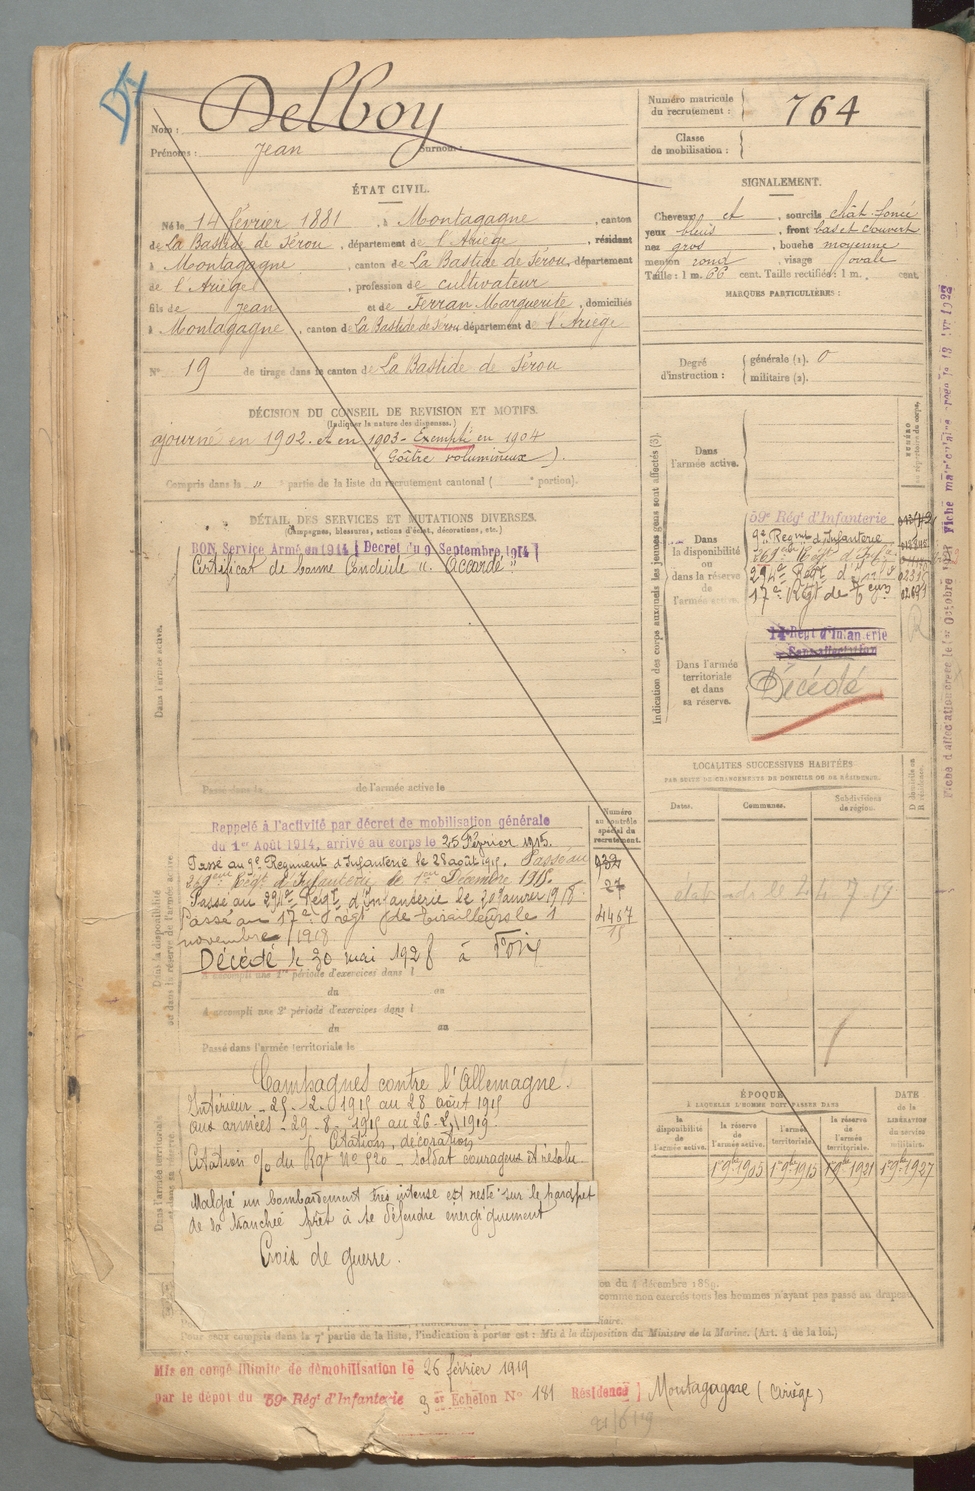 Nom : Delboy
Prénoms : Jean Surnom :
Numéro matricule du recrutement : 764
Classe de mobilisation :
ÉTAT CIVIL.
Né le 14 février 1881, à Montagagne, canton
de La Bastide de Sérou, département de l'Ariège, résidant
à Montagagne, canton de La Bastide de Sérou, département
de l'Ariège, profession de cultivateur
fils de Jean et de Ferran Marguerite, domiciliés
à Montagagne, canton de La Bastide de Sérou département de l'Ariège
N° 19 de tirage dans le canton de La Bastide de Sérou
SIGNALEMENT.
Cheveux et, sourcils chât. foncé
yeux bleus, front bas et couvert
nez gros, bouche moyenne
menton rond, visage ovale
Taille : 1 m. 66 cent. Taille rectifiée : 1 m. cent.
MARQUES PARTICULIÈRES :
Degré d'instruction : générale (1). 0
militaire (2).
DÉCISION DU CONSEIL DE REVISION ET MOTIFS.
(Indiquer la nature des dispenses.)
ajourné en 1902. et en 1903 - Exempté en 1904
(Goître volumineux).
Compris dans la " partie de la liste du recrutement cantonal ( portion).
DÉTAIL DES SERVICES ET MUTATIONS DIVERSES.
(Campagnes, blessures, actions d'éclat, décorations, etc.)
BON Service Armé en 1914 (Décret du 9 Septembre 1914)
Certificat de bonne Conduite " Accordé "
Dans l'armée active.
Passé dans la de l'armée active le
Indication des corps auxquels les jeunes gens sont affectés (3).
Dans l'armée active.
Dans la disponibilité ou dans la réserve de l'armée active.
59e Régt d'Infanterie
9e Régmt d'Infanterie
294e Régt d'Inf
17e Régt de
Dans l'armée territoriale et dans sa réserve.
14e Régt d'Infanterie
Sans affectation
Décédé
LOCALITÉS SUCCESSIVES HABITÉES
PAR SUITE DE CHANGEMENTS DE DOMICILE OU DE RÉSIDENCE.
Dates. Communes. Subdivisions de région.
Numéro au contrôle spécial du recrutement.
Rappelé à l'activité par décret de mobilisation générale
du 1er Août 1914, arrivé au corps le 25 Février 1915.
Passé au 9e Régiment d'Infanterie le 28 août 1915. Passé au
Régt d'Infanterie le 1er Décembre 191
Passé au 294e Régt d'Infanterie le 30 janvier 1918.
Passé au 17e Régt de Tirailleurs le 1
novembre 1918
Décédé le 30 mai 1928 à Foix
A accompli une 1re période d'exercices dans l
du au
A accompli une 2e période d'exercices dans l
du au
Passé dans l'armée territoriale le
4467
Campagnes contre l'Allemagne.
Intérieur - 25 - 2 - 1915 au 28 août 1915
aux armées - 29 - 8 - 1915 au 26-2-1919.
Citation, décoration
Citation % du Rgt N° 520 - Soldat courageux et résolu.
Malgré un bombardement très intense est resté sur le parapet
de la tranchée prêt à se défendre énergiquement
Croix de guerre.
ÉPOQUE
À LAQUELLE L'HOMME DOIT PASSER DANS
la disponibilité de l'armée active.
la réserve de l'armée active.
l'armée territoriale.
la réserve de l'armée territoriale.
DATE de la LIBÉRATION du service militaire.
1er 9bre 1905 1er 9bre 1915 1er 9bre 1921 1er 9bre 1927
en du 4 décembre 1889.
comme non exercés tous les hommes n'ayant pas passé au drapeau
Pour ceux compris dans la 7e partie de la liste, l'indication à porter est : Mis à la disposition du Ministre de la Marine. (Art. 4 de la loi.)
Mis en congé illimité de démobilisation le 26 février 1919
par le dépôt du 59e Régt d'Infanterie 3 er Echelon N° 181 Résidence ) Montagagne (Ariège)